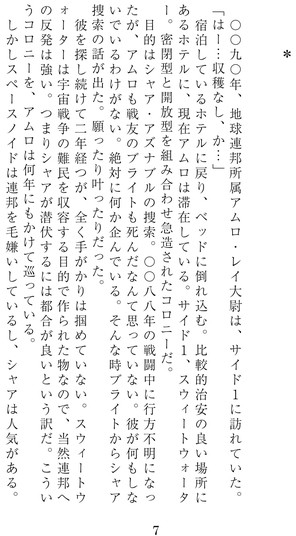 ＊
〇〇九〇年、地球連邦所属アムロ・レイ大尉は、サイド1に訪れていた。
「はー…収穫なし、か…」
宿泊しているホテルに戻り、ベッドに倒れ込む。比較的治安の良い場所に
あるホテルに、現在アムロは滞在している。サイド1、スウィートウォータ
ー。密閉型と開放型を組み合わせ急造されたコロニーだ。
目的はシャア・アズナブルの捜索。〇〇八八年の戦闘中に行方不明になっ
たが、アムロも戦友のブライトも死んだなんて思っていない。彼が何もしな
いでいるわけがない。絶対に何か企んでいる。そんな時ブライトからシャア
捜索の話が出た。願ったり叶ったりだった。
彼を探し続けて二年経つが、全く手がかりは掴めていない。スウィートウ
ォーターは宇宙戦争の難民を収容する目的で作られた物なので、当然連邦へ
の反発は強い。つまりシャアが潜伏するには都合が良いという訳だ。こうい
うコロニーを、アムロは何年にもかけて巡っている。
しかしスペースノイドは連邦を毛嫌いしているし、シャアは人気がある。
7